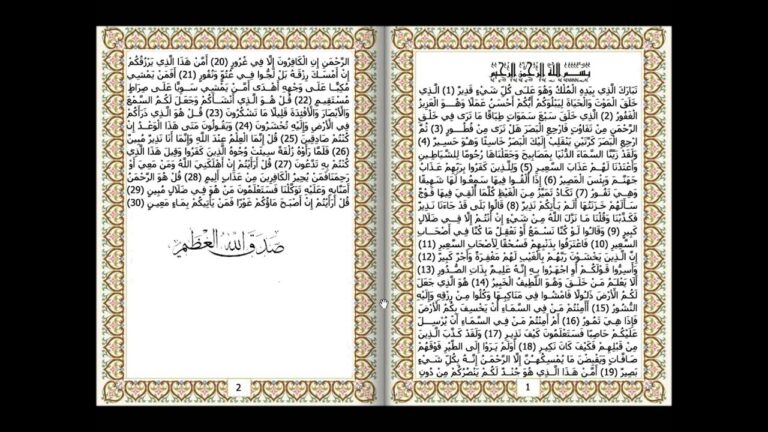 بسم الله الرحمن الرحيم
تَبَارَكَ الَّذِي بِيَدِهِ الْمُلْكُ وَهُوَ عَلَى كُلِّ شَيْءٍ قَدِيرٌ (1) الَّذِي
خَلَقَ الْمَوْتَ وَالْحَيَاةَ لِيَبْلُوَكُمْ أَيُّكُمْ أَحْسَنُ عَمَلًا وَهُوَ الْعَزِيزُ
الْغَفُورُ (2) الَّذِي خَلَقَ سَبْعَ سَمَوَاتٍ طِبَاقًا مَا تَرَى فِي خَلْقِ
الرَّحْمَنِ مِنْ تَفَاوُتٍ فَارْجِعِ الْبَصَرَ هَلْ تَرَى مِنْ فُطُورٍ (3) ثُمَّ
ارْجِعِ الْبَصَرَ كَرَّتَيْنِ يَنْقَلِبْ إِلَيْكَ الْبَصَرُ خَاسِئًا وَهُوَ حَسِيرٌ (4)
وَلَقَدْ زَيَّنَّا السَّمَاءَ الدُّنْيَا بِمَصَابِيحَ وَجَعَلْنَاهَا رُجُومًا لِلشَّيَاطِينِ
وَأَعْتَدْنَا لَهُمْ عَذَابَ السَّعِيرِ (5) وَلِلَّذِينَ كَفَرُوا بِرَبِّهِمْ عَذَابُ
جَهَنَّمَ وَبِئْسَ الْمَصِيرُ (6) إِذَا أُلْقُوا فِيهَا سَمِعُوا لَهَا شَهِيقًا
وَهِيَ تَفُورُ (7) تَكَادُ تَمَيَّزُ مِنَ الْغَيْظِ كُلَّمَا أُلْقِيَ فِيهَا فَوْجٌ
سَأَلَهُمْ خَزَنَتُهَا أَلَمْ يَأْتِكُمْ نَذِيرٌ (8) قَالُوا بَلَى قَدْ جَاءَنَا نَذِيرٌ
فَكَذَّبْنَا وَقُلْنَا مَا نَزَّلَ اللَّهُ مِنْ شَيْءٍ إِنْ أَنْتُمْ إِلَّا فِي ضَلَالٍ
كَبِيرٍ (9) وَقَالُوا لَوْ كُنَّا نَسْمَعُ أَوْ نَعْقِلُ مَا كُنَّا فِي أَصْحَابِ
السَّعِيرِ (10) فَاعْتَرَفُوا بِذَنْبِهِمْ فَسُحْقًا لِأَصْحَابِ السَّعِيرِ (11)
إِنَّ الَّذِينَ يَخْشَوْنَ رَبَّهُمْ بِالْغَيْبِ لَهُمْ مَغْفِرَةٌ وَأَجْرٌ كَبِيرٌ (12)
وَأَسِرُّوا قَوْلَكُمْ أَوِ اجْهَرُوا بِهِ إِنَّهُ عَلِيمٌ بِذَاتِ الصُّدُورِ (13)
أَلَا يَعْلَمُ مَنْ خَلَقَ وَهُوَ اللَّطِيفُ الْخَبِيرُ (14) هُوَ الَّذِي جَعَلَ
لَكُمُ الْأَرْضَ ذَلُولًا فَامْشُوا فِي مَنَاكِبِهَا وَكُلُوا مِنْ رِزْقِهِ وَإِلَيْهِ
النُّشُورُ (15) أَأَمِنْتُمْ مَنْ فِي السَّمَاءِ أَنْ يَخْسِفَ بِكُمُ الْأَرْضَ
فَإِذَا هِيَ تَمُورُ (16) أَمْ أَمِنْتُمْ مَنْ فِي السَّمَاءِ أَنْ يُرْسِلَ
عَلَيْكُمْ حَاصِبًا فَسَتَعْلَمُونَ كَيْفَ نَذِيرِ (17) وَلَقَدْ كَذَّبَ الَّذِينَ
مِنْ قَبْلِهِمْ فَكَيْفَ كَانَ نَكِيرِ (18) أَوَلَمْ يَرَوْا إِلَى الطَّيْرِ فَوْقَهُمْ
صَافَّاتٍ وَيَقْبِضْنَ مَا يُمْسِكُهُنَّ إِلَّا الرَّحْمَنُ إِنَّهُ بِكُلِّ شَيْءٍ
بَصِيرٌ (19) أَمَّنْ هَذَا الَّذِي هُوَ جُنْدٌ لَكُمْ يَنْصُرُكُمْ مِنْ دُونِ
1
الرَّحْمَنِ إِنِ الْكَافِرُونَ إِلَّا فِي غُرُورٍ (20) أَمَّنْ هَذَا الَّذِي يَرْزُقُكُمْ
إِنْ أَمْسَكَ رِزْقَهُ بَلْ لَجُّوا فِي عُتُوٍّ وَنُفُورٍ (21) أَفَمَنْ يَمْشِي
مُكِبًّا عَلَى وَجْهِهِ أَهْدَى أَمَّنْ يَمْشِي سَوِيًّا عَلَى صِرَاطٍ
مُسْتَقِيمٍ (22) قُلْ هُوَ الَّذِي أَنْشَأَكُمْ وَجَعَلَ لَكُمُ السَّمْعَ
وَالْأَبْصَارَ وَالْأَفْئِدَةَ قَلِيلًا مَا تَشْكُرُونَ (23) قُلْ هُوَ الَّذِي ذَرَأَكُمْ
فِي الْأَرْضِ وَإِلَيْهِ تُحْشَرُونَ (24) وَيَقُولُونَ مَتَى هَذَا الْوَعْدُ إِنْ
كُنْتُمْ صَادِقِينَ (25) قُلْ إِنَّمَا الْعِلْمُ عِنْدَ اللَّهِ وَإِنَّمَا أَنَا نَذِيرٌ مُبِينٌ
(26) فَلَمَّا رَأَوْهُ زُلْفَةً سِيئَتْ وُجُوهُ الَّذِينَ كَفَرُوا وَقِيلَ هَذَا الَّذِي
كُنْتُمْ بِهِ تَدَّعُونَ (27) قُلْ أَرَأَيْتُمْ إِنْ أَهْلَكَنِيَ اللَّهُ وَمَنْ مَعِيَ أَوْ
رَحِمَنَا فَمَنْ يُجِيرُ الْكَافِرِينَ مِنْ عَذَابٍ أَلِيمٍ (28) قُلْ هُوَ الرَّحْمَنُ
آمَنَّا بِهِ وَعَلَيْهِ تَوَكَّلْنَا فَسَتَعْلَمُونَ مَنْ هُوَ فِي ضَلَالٍ مُبِينٍ (29)
قُلْ أَرَأَيْتُمْ إِنْ أَصْبَحَ مَاؤُكُمْ غَوْرًا فَمَنْ يَأْتِيكُمْ بِمَاءٍ مَعِينٍ (30)
صدق الله العظيم
2